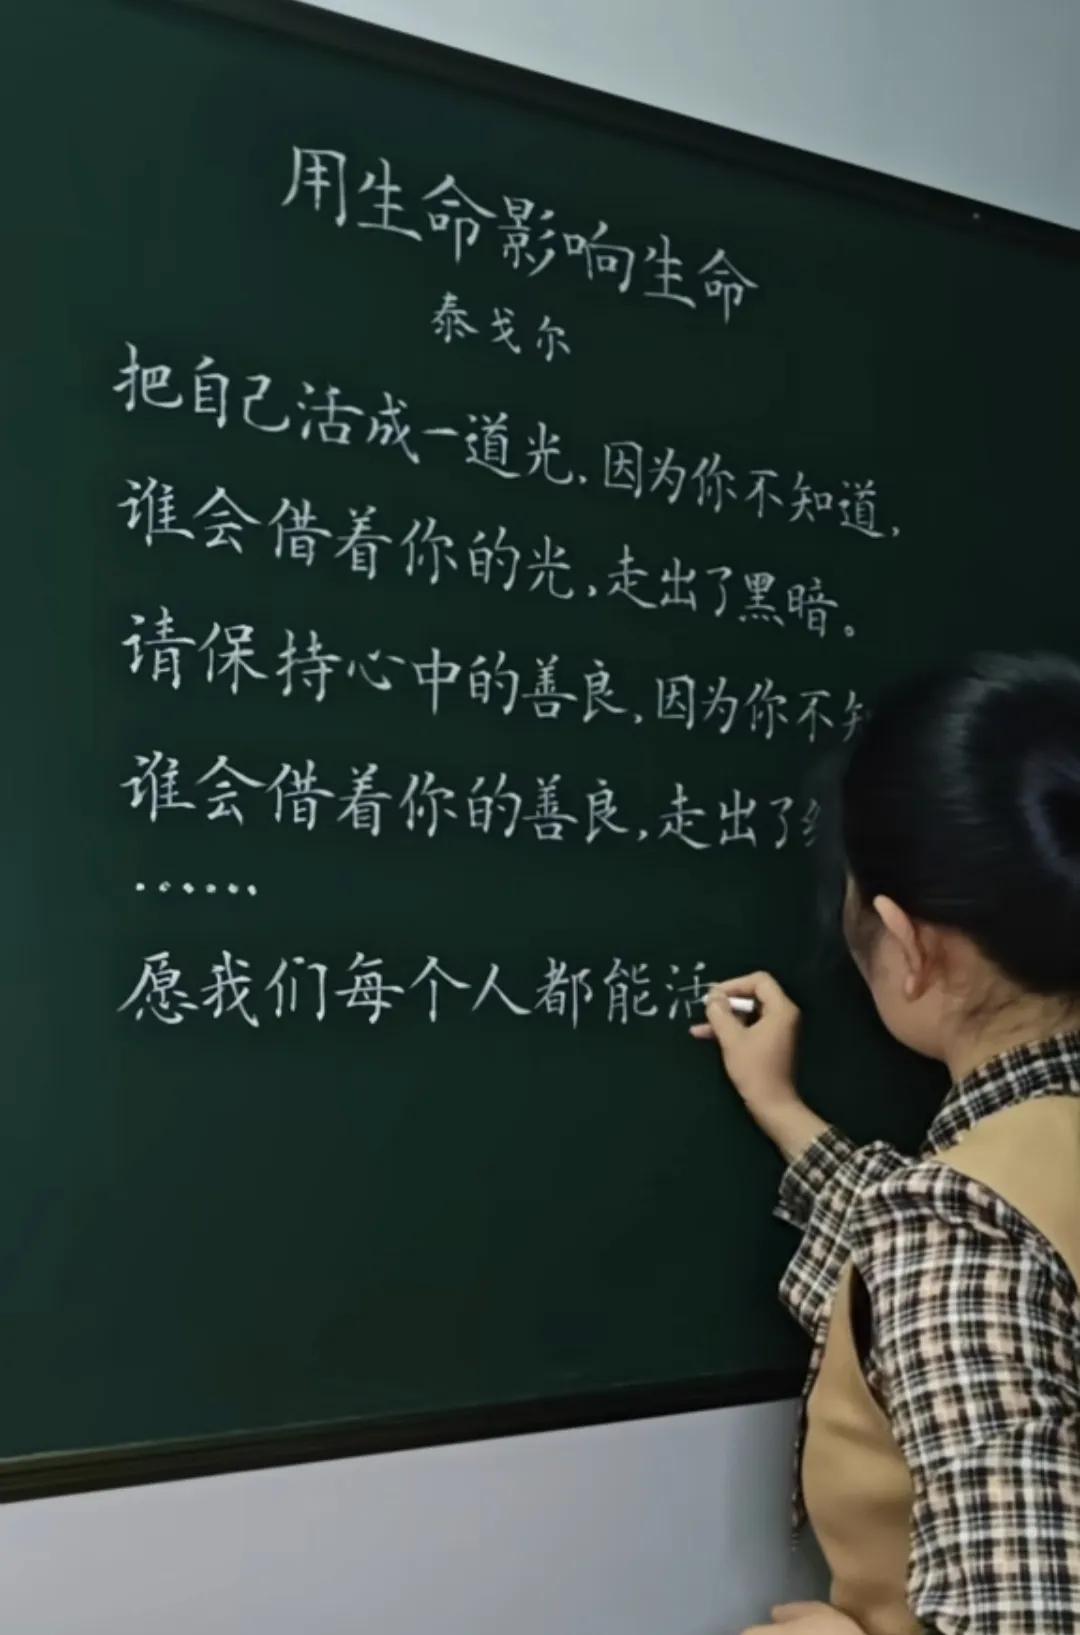 用生命影响生命
泰戈尔
把自己活成一道光,因为你不知道,
谁会借着你的光,走出了黑暗。
请保持心中的善良,因为你不
谁会借着你的善良,走出了
······
愿我们每个人都能活